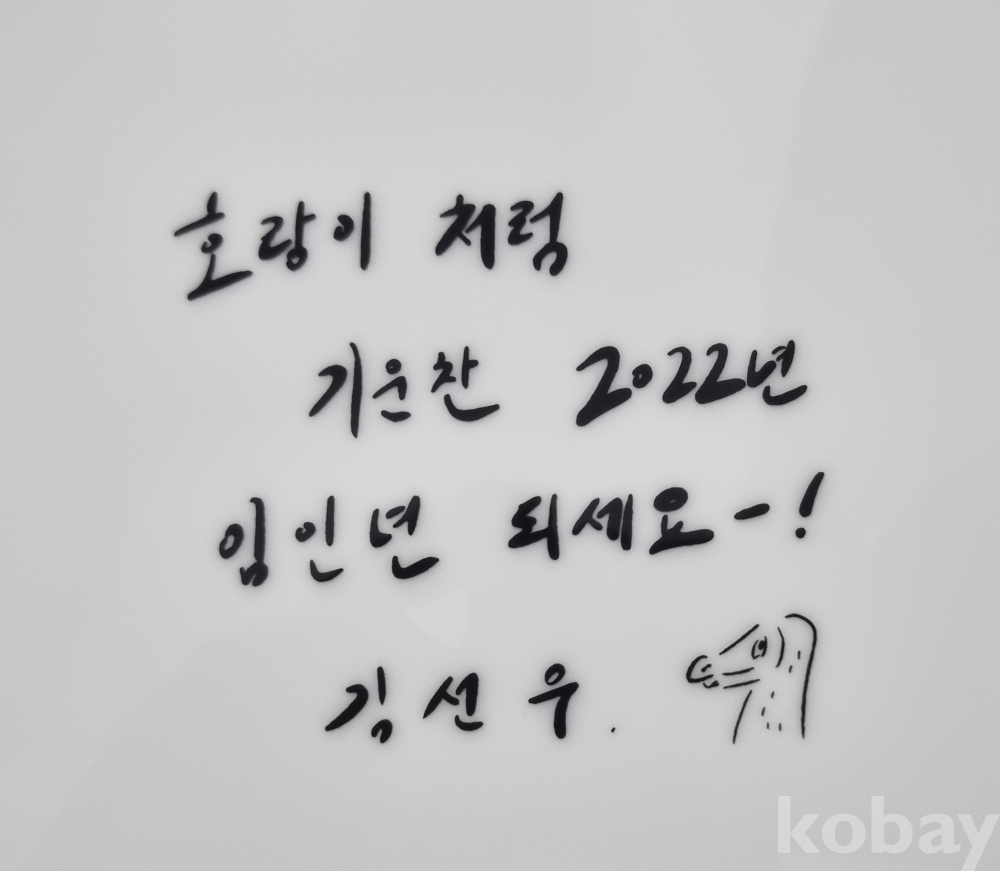 호랑이 처럼
기운찬 2022년
임인년 되세요-!
김선우.
kobay